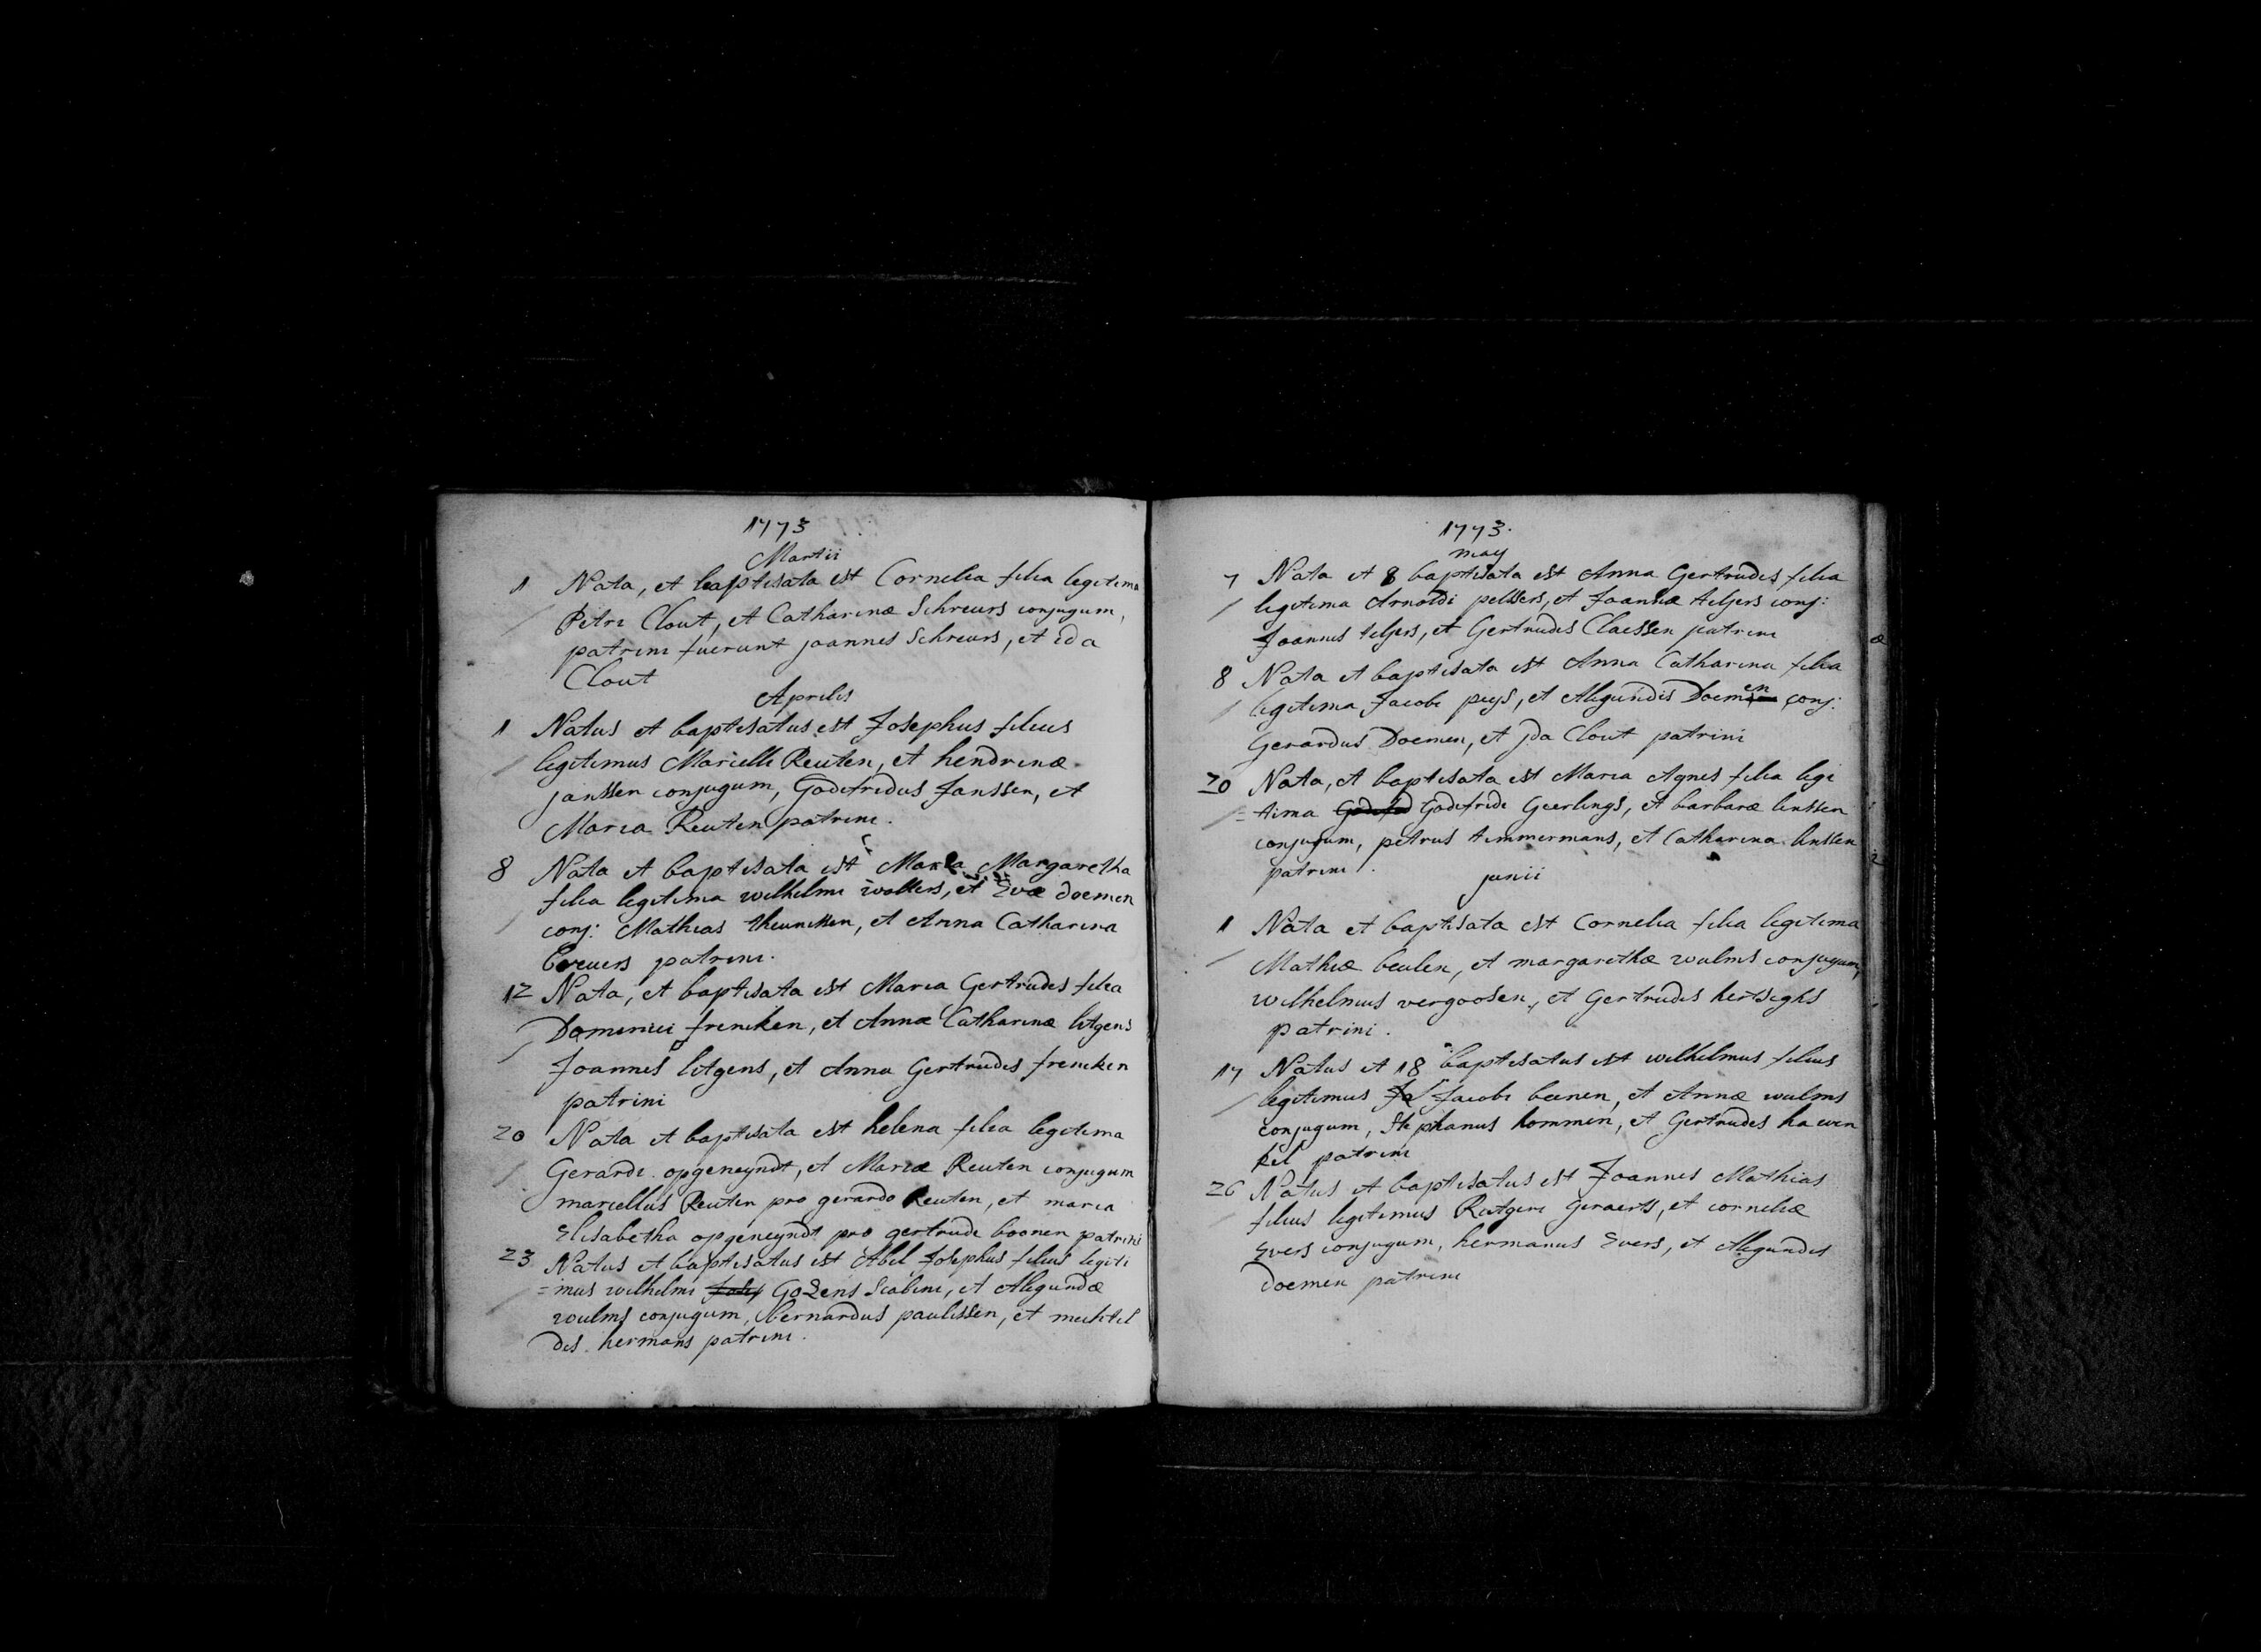 1773
Martii
1 Nata, et baptisata est Cornelia filia legitima
Petri Clout, et Catharinæ Schreurs conjugum,
patrini fuerunt joannes Schreurs, et ida
Clout
Aprilis
1 Natus et baptisatus est Josephus filius
legitimus Marcelli Reuten, et hendrinæ
janssen conjugum, Godefridus Janssen, et
Maria Reuten patrini.
8 Nata et baptisata est Maria Margaretha
filia legitima wilhelmi wolters, et Evæ doemen
conj: Mathias theunissen, et Anna Catharina
breuers patrini.
12 Nata, et baptisata est Maria Gertrudis filia
Dominici frencken, et Annæ Catharinæ litgens
Joannes litgens, et Anna Gertrudis frencken
patrini
20 Nata et baptisata est helena filia legitima
Gerardi opgeneyndt, et Mariæ Reuten conjugum
marcellus Reuten pro gerardo Reuten, et maria
Elisabetha opgeneyndt pro gertrude boonen patrini
23 Natus et baptisatus est Abel Josephus filius legiti
=mus wilhelmi Gozens Scabini, et Alegundæ
wulms conjugum, bernardus paulissen, et mechtil
dis hermans patrini.
1773.
may
7 Nata et 8 baptisata est Anna Gertrudis filia
legitima Arnoldi pelssers, et Joannæ tiljers conj:
Joannes tiljers, et Gertrudis Claessen patrini
8 Nata et baptisata est Anna Catharina filia
legitima Jacobi peys, et Alegundis Doemen conj:
Gerardus Doemen, et jda Clout patrini
20 Nata, et baptisata est Maria Agnes filia legi
=tima Godefridi Geerlings, et barbaræ linssen
conjugum, petrus timmermans, et Catharina linssen
patrini.
junii
1 Nata et baptisata est Cornelia filia legitima
Mathiæ beulen, et margarethæ wulms conjugum,
wilhelmus vergoosen, et Gertrudis hertsighs
patrini.
17 Natus et 18 baptisatus est wilhelmus filius
legitimus Ja Jacobi beenen, et Annæ wulms
conjugum, Stephanus hommen, et Gertrudis haeven
kel patrini
26 Natus et baptisatus est Joannes Mathias
filius legitimus Rutgeri Geraerts, et corneliæ
Evers conjugum, hermanus Evers, et Alegundis
doemen patrini